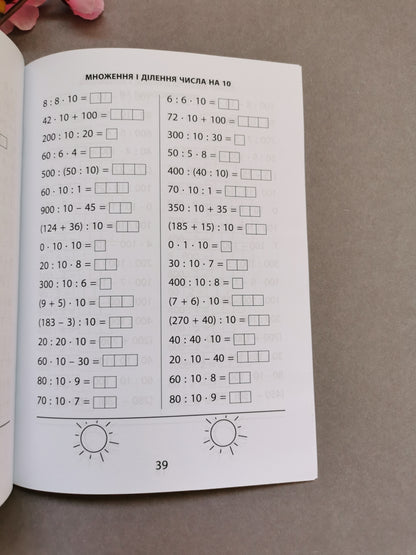 МНОЖЕННЯ І ДІЛЕННЯ ЧИСЛА НА 10
8 : 8 · 10 =
42 · 10 + 100 =
200 : 10 : 20 =
60 : 6 · 4 =
500 : (50 : 10) =
60 · 10 : 1 =
900 : 10 – 45 =
(124 + 36) : 10 =
0 · 10 · 10 =
20 : 10 · 8 =
300 : 10 : 6 =
(9 + 5) · 10 =
(183 – 3) : 10 =
20 : 20 · 10 =
60 · 10 – 30 =
80 : 10 · 9 =
70 : 10 · 7 =
6 : 6 · 10 =
72 · 10 + 100 =
300 : 10 : 30 =
50 : 5 · 8 =
400 : (40 : 10) =
70 · 10 : 1 =
350 : 10 + 35 =
(185 + 15) : 10 =
0 · 1 · 10 =
30 : 10 · 7 =
400 : 10 : 8 =
(7 + 6) · 10 =
(270 + 40) : 10 =
40 : 40 · 10 =
20 · 10 – 40 =
60 : 10 · 8 =
80 : 10 · 9 =
39